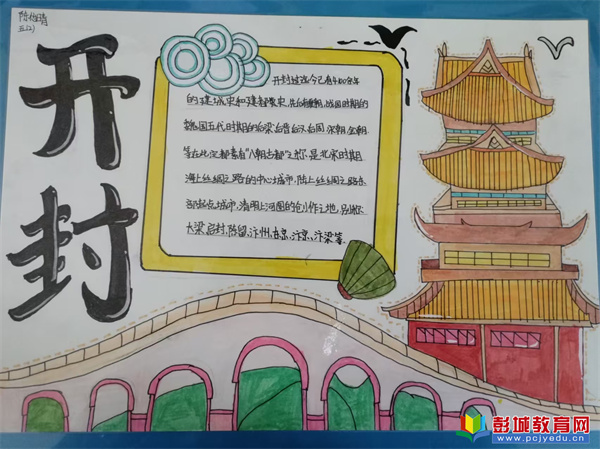 陈怡晴
五(2)
开封
开封迄今已有4100余年
的建城史和建都史,先后有夏朝,战国时期的
魏国五代时期的后梁后晋后汉后周,宋朝,金朝
等在此定都素有"八朝古都"之称,是北宋时期
海上丝绸之路的中心城市,陆上丝绸之路东
部起点城市,清明上河图的创作之地,别称
大梁,启封,陈留,汴州,东京,汴京,汴梁等.
彭城教育网
www.pcjyedu.cn